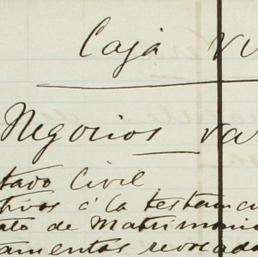 Caja
Negocios va
tado Civil
tivos á la testamen
ato de Matrimonio
amentos revocado